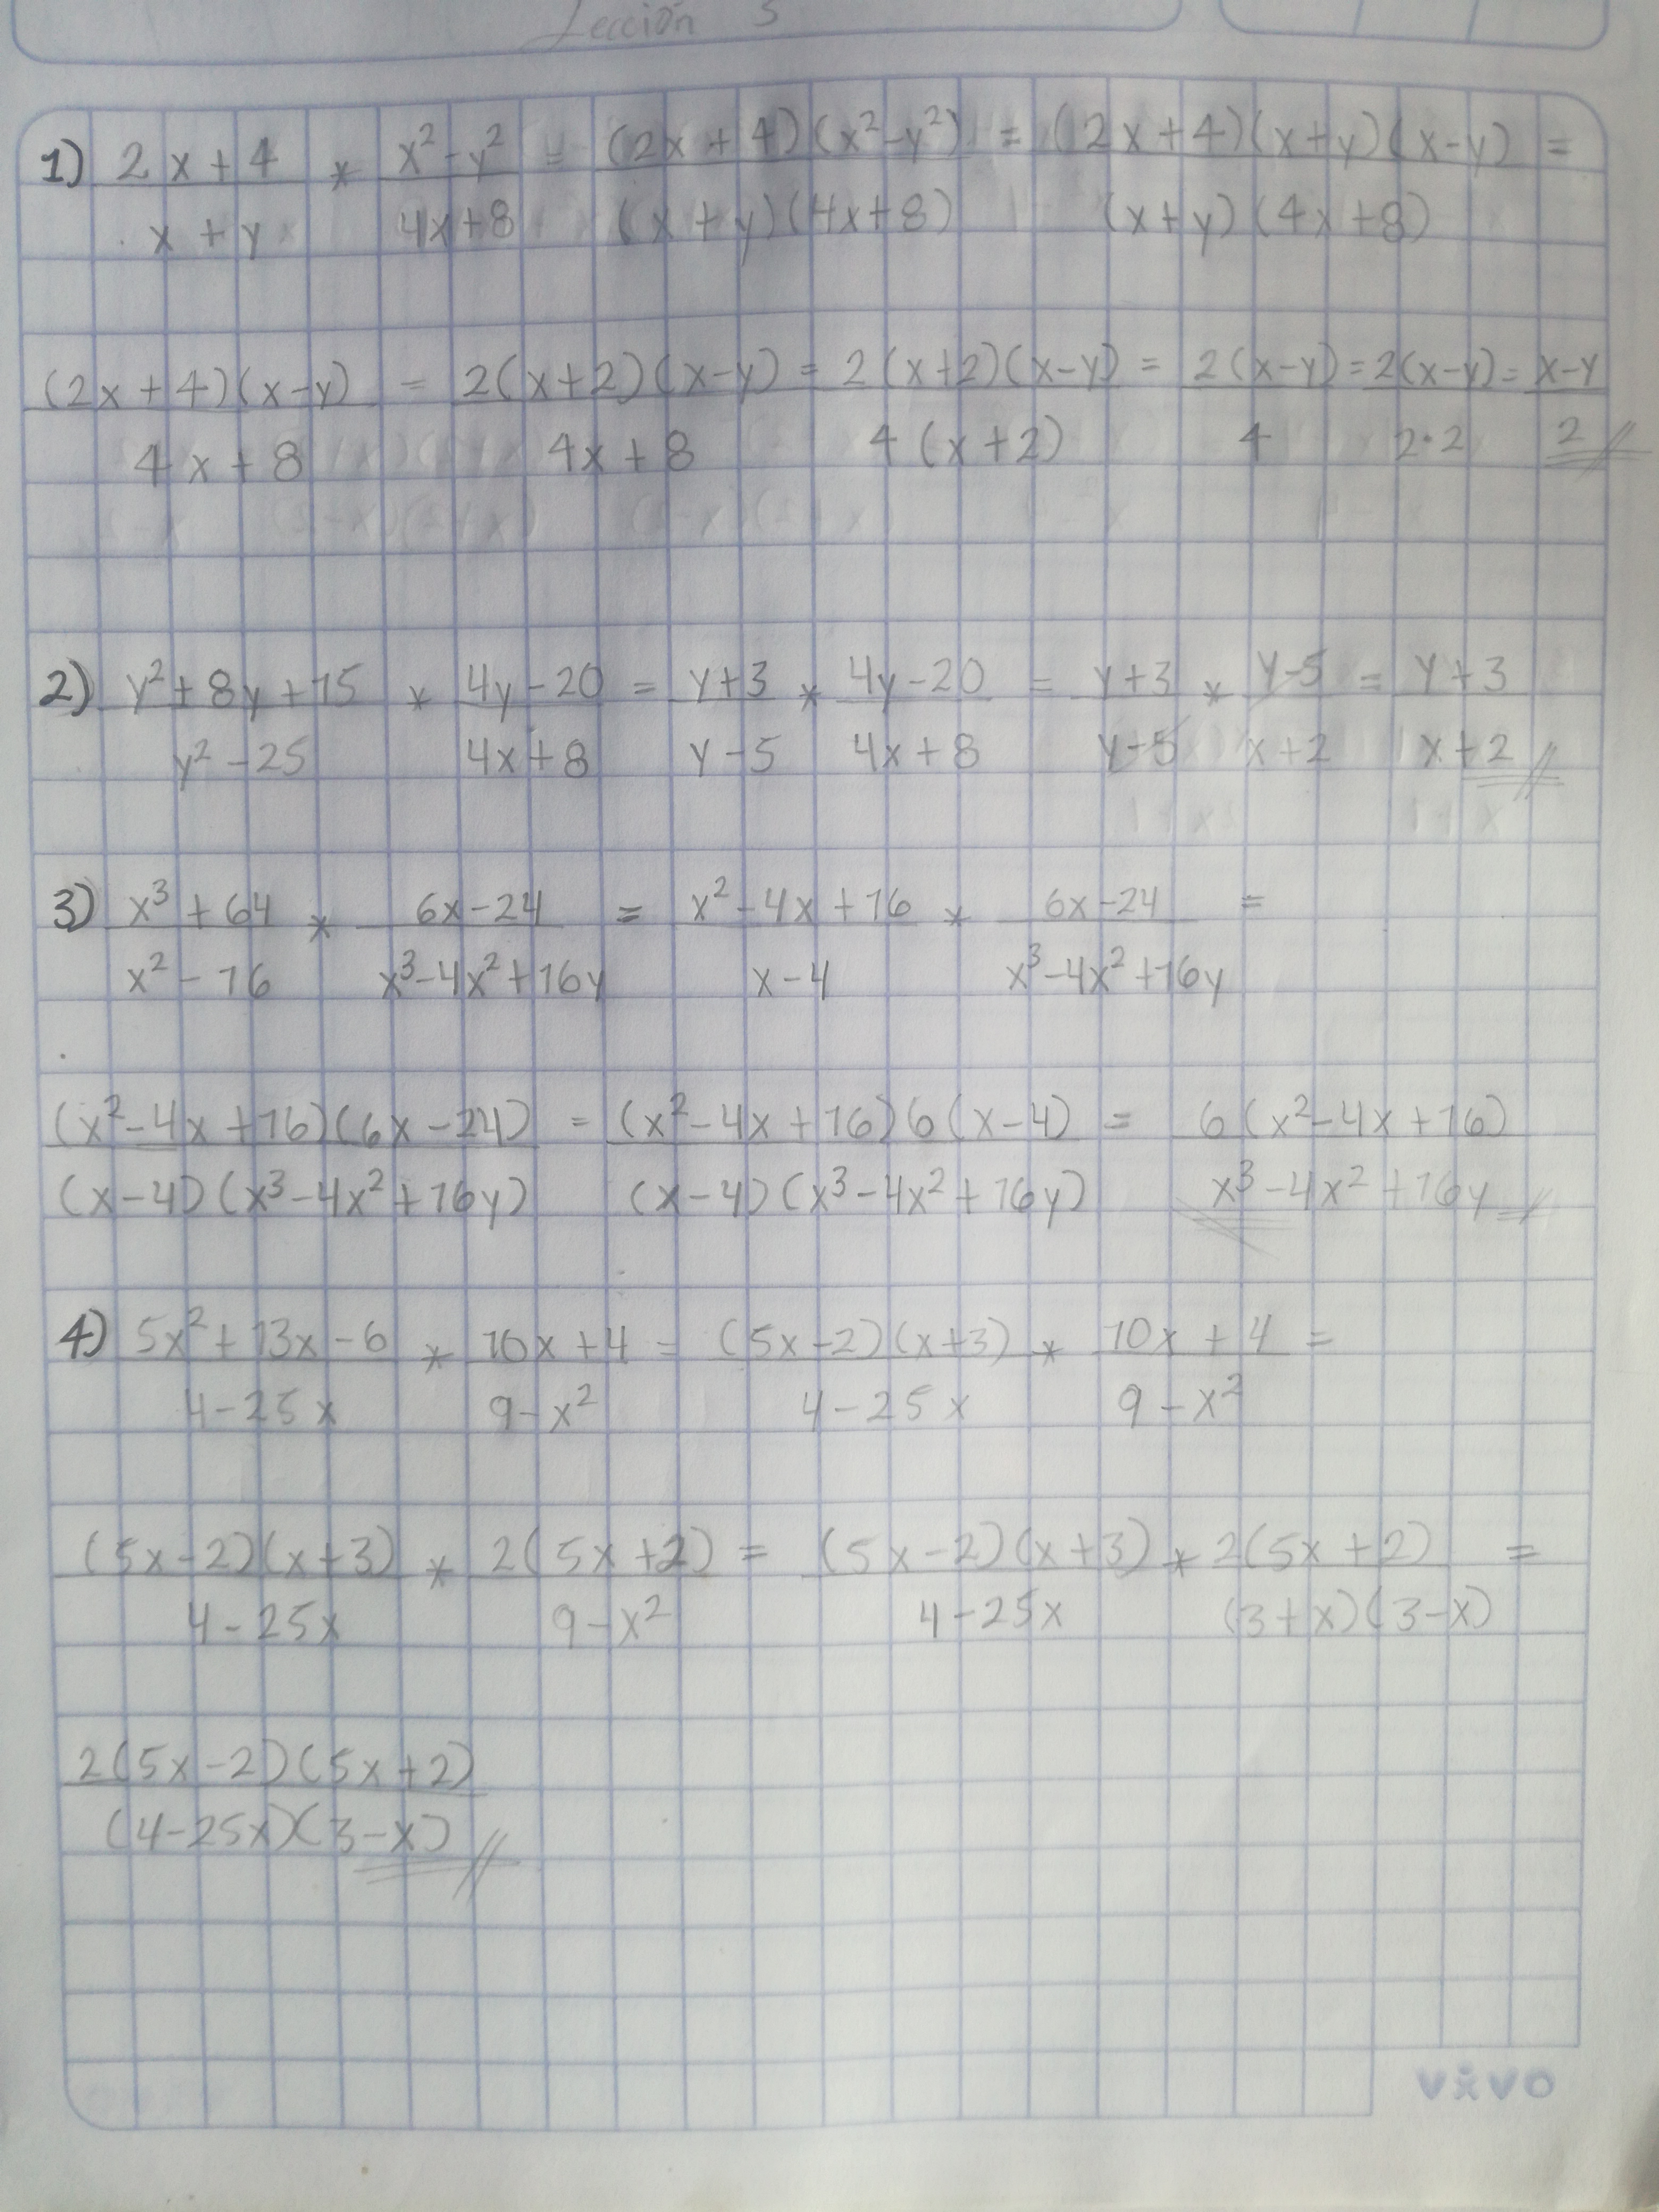 Lección 5
1) (2x+4)/(x+y) * (x²-y²)/(4x+8) = (2x+4)(x²-y²)/(x+y)(4x+8) = (2x+4)(x+y)(x-y)/(x+y)(4x+8) =
(2x+4)(x-y)/4x+8 = 2(x+2)(x-y)/4x+8 = 2(x+2)(x-y)/4(x+2) = 2(x-y)/4 = 2(x-y)/2·2 = x-y/2
2) y²+8y+15/y²-25 * 4y-20/4x+8 = y+3/y-5 * 4y-20/4x+8 = y+3/y-5 * y-5/x+2 = y+3/x+2
3) x³+64/x²-16 * 6x-24/x³-4x²+16y = x²-4x+16/x-4 * 6x-24/x³-4x²+16y =
(x²-4x+16)(6x-24)/(x-4)(x³-4x²+16y) = (x²-4x+16)6(x-4)/(x-4)(x³-4x²+16y) = 6(x²-4x+16)/x³-4x²+16y
4) 5x²+13x-6/4-25x * 10x+4/9-x² = (5x-2)(x+3)/4-25x * 10x+4/9-x² =
(5x-2)(x+3)/4-25x * 2(5x+2)/9-x² = (5x-2)(x+3)/4-25x * 2(5x+2)/(3+x)(3-x) =
2(5x-2)(5x+2)/(4-25x)(3-x)
vivo